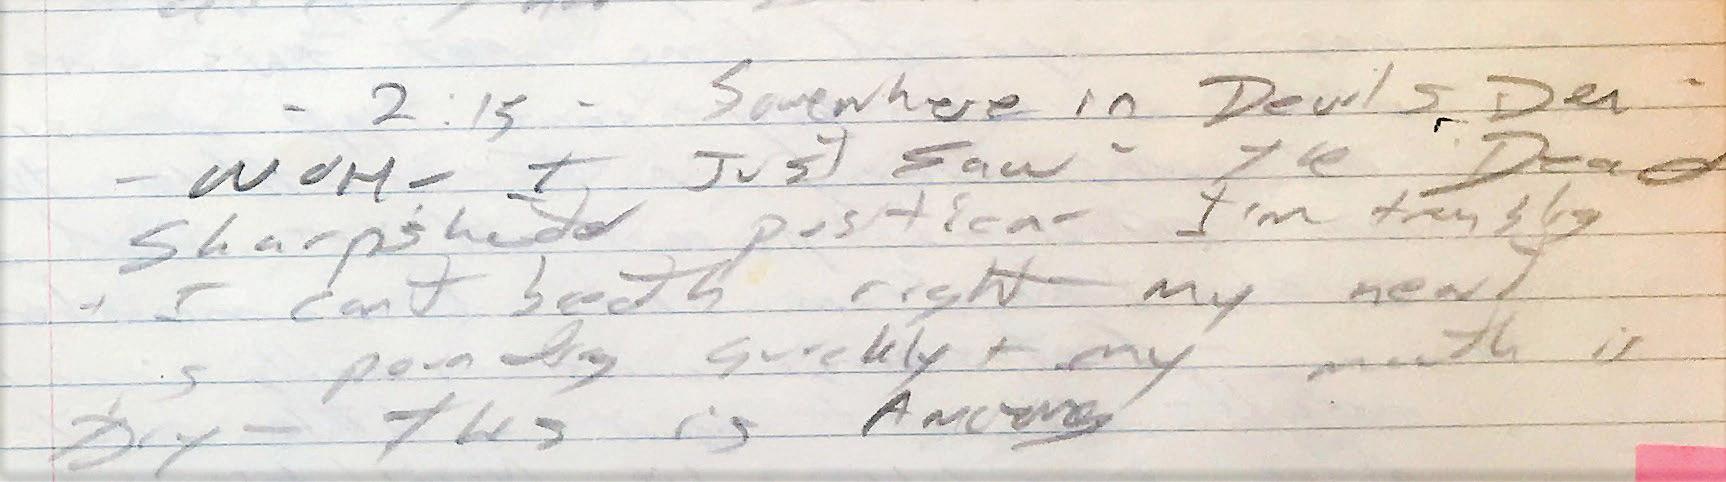 - 2:15 - Somewhere in Devil's Den -
- WOH - I Just saw - the Dead
Sharpshooter position - I'm trembling
- I can't breath right - my heart
is pounding quickly + my mouth is
Dry - This is Amazing